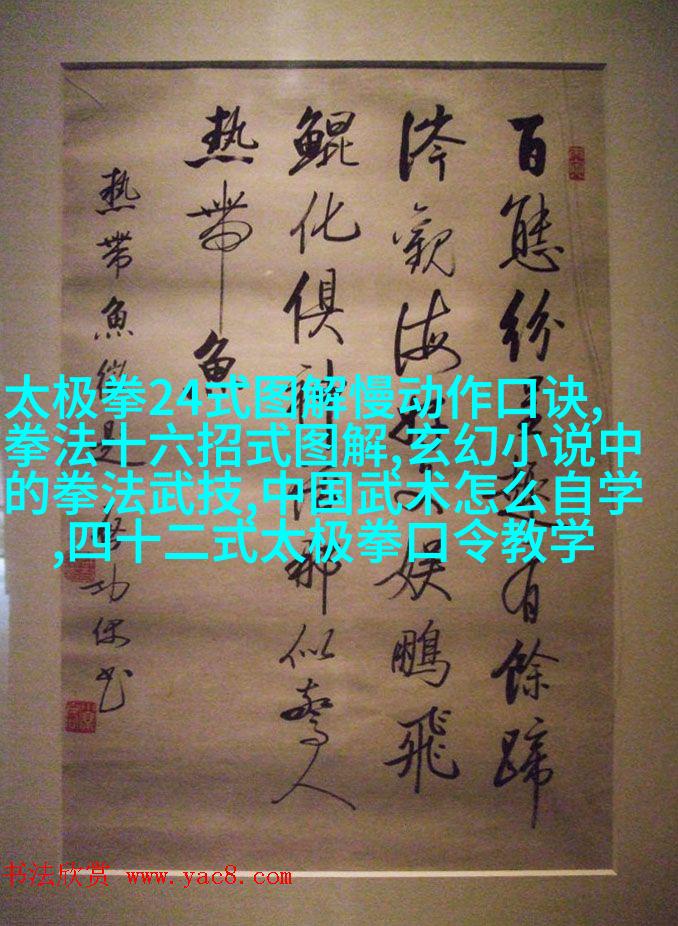 百態紛呈趣有餘蹄
涔觀海娛鵬飛
鯤化俱那似驚人
熱帶魚
熱帶魚徵題功書
太极拳24式图解慢动作口诀,
拳法十六招式图解,玄幻小说中
的拳法武技,中国武术怎么自学
,四十二式太极拳口令教学
书法欣赏 www.yac8.com